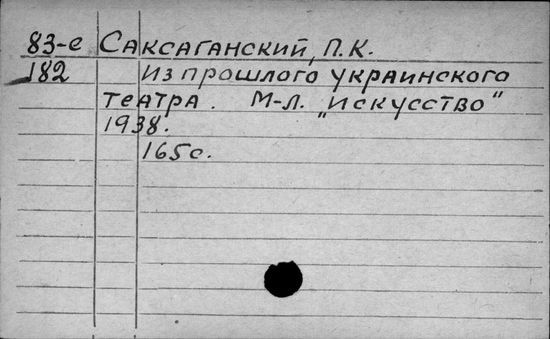 83-е САКСАГАНСКИЙ, П.К.
182 ИЗ ПРОШЛОГО УКРАИНСКОГО
ТЕАТРА. М-Л. „ИСКУССТВО"
1938.
165с.